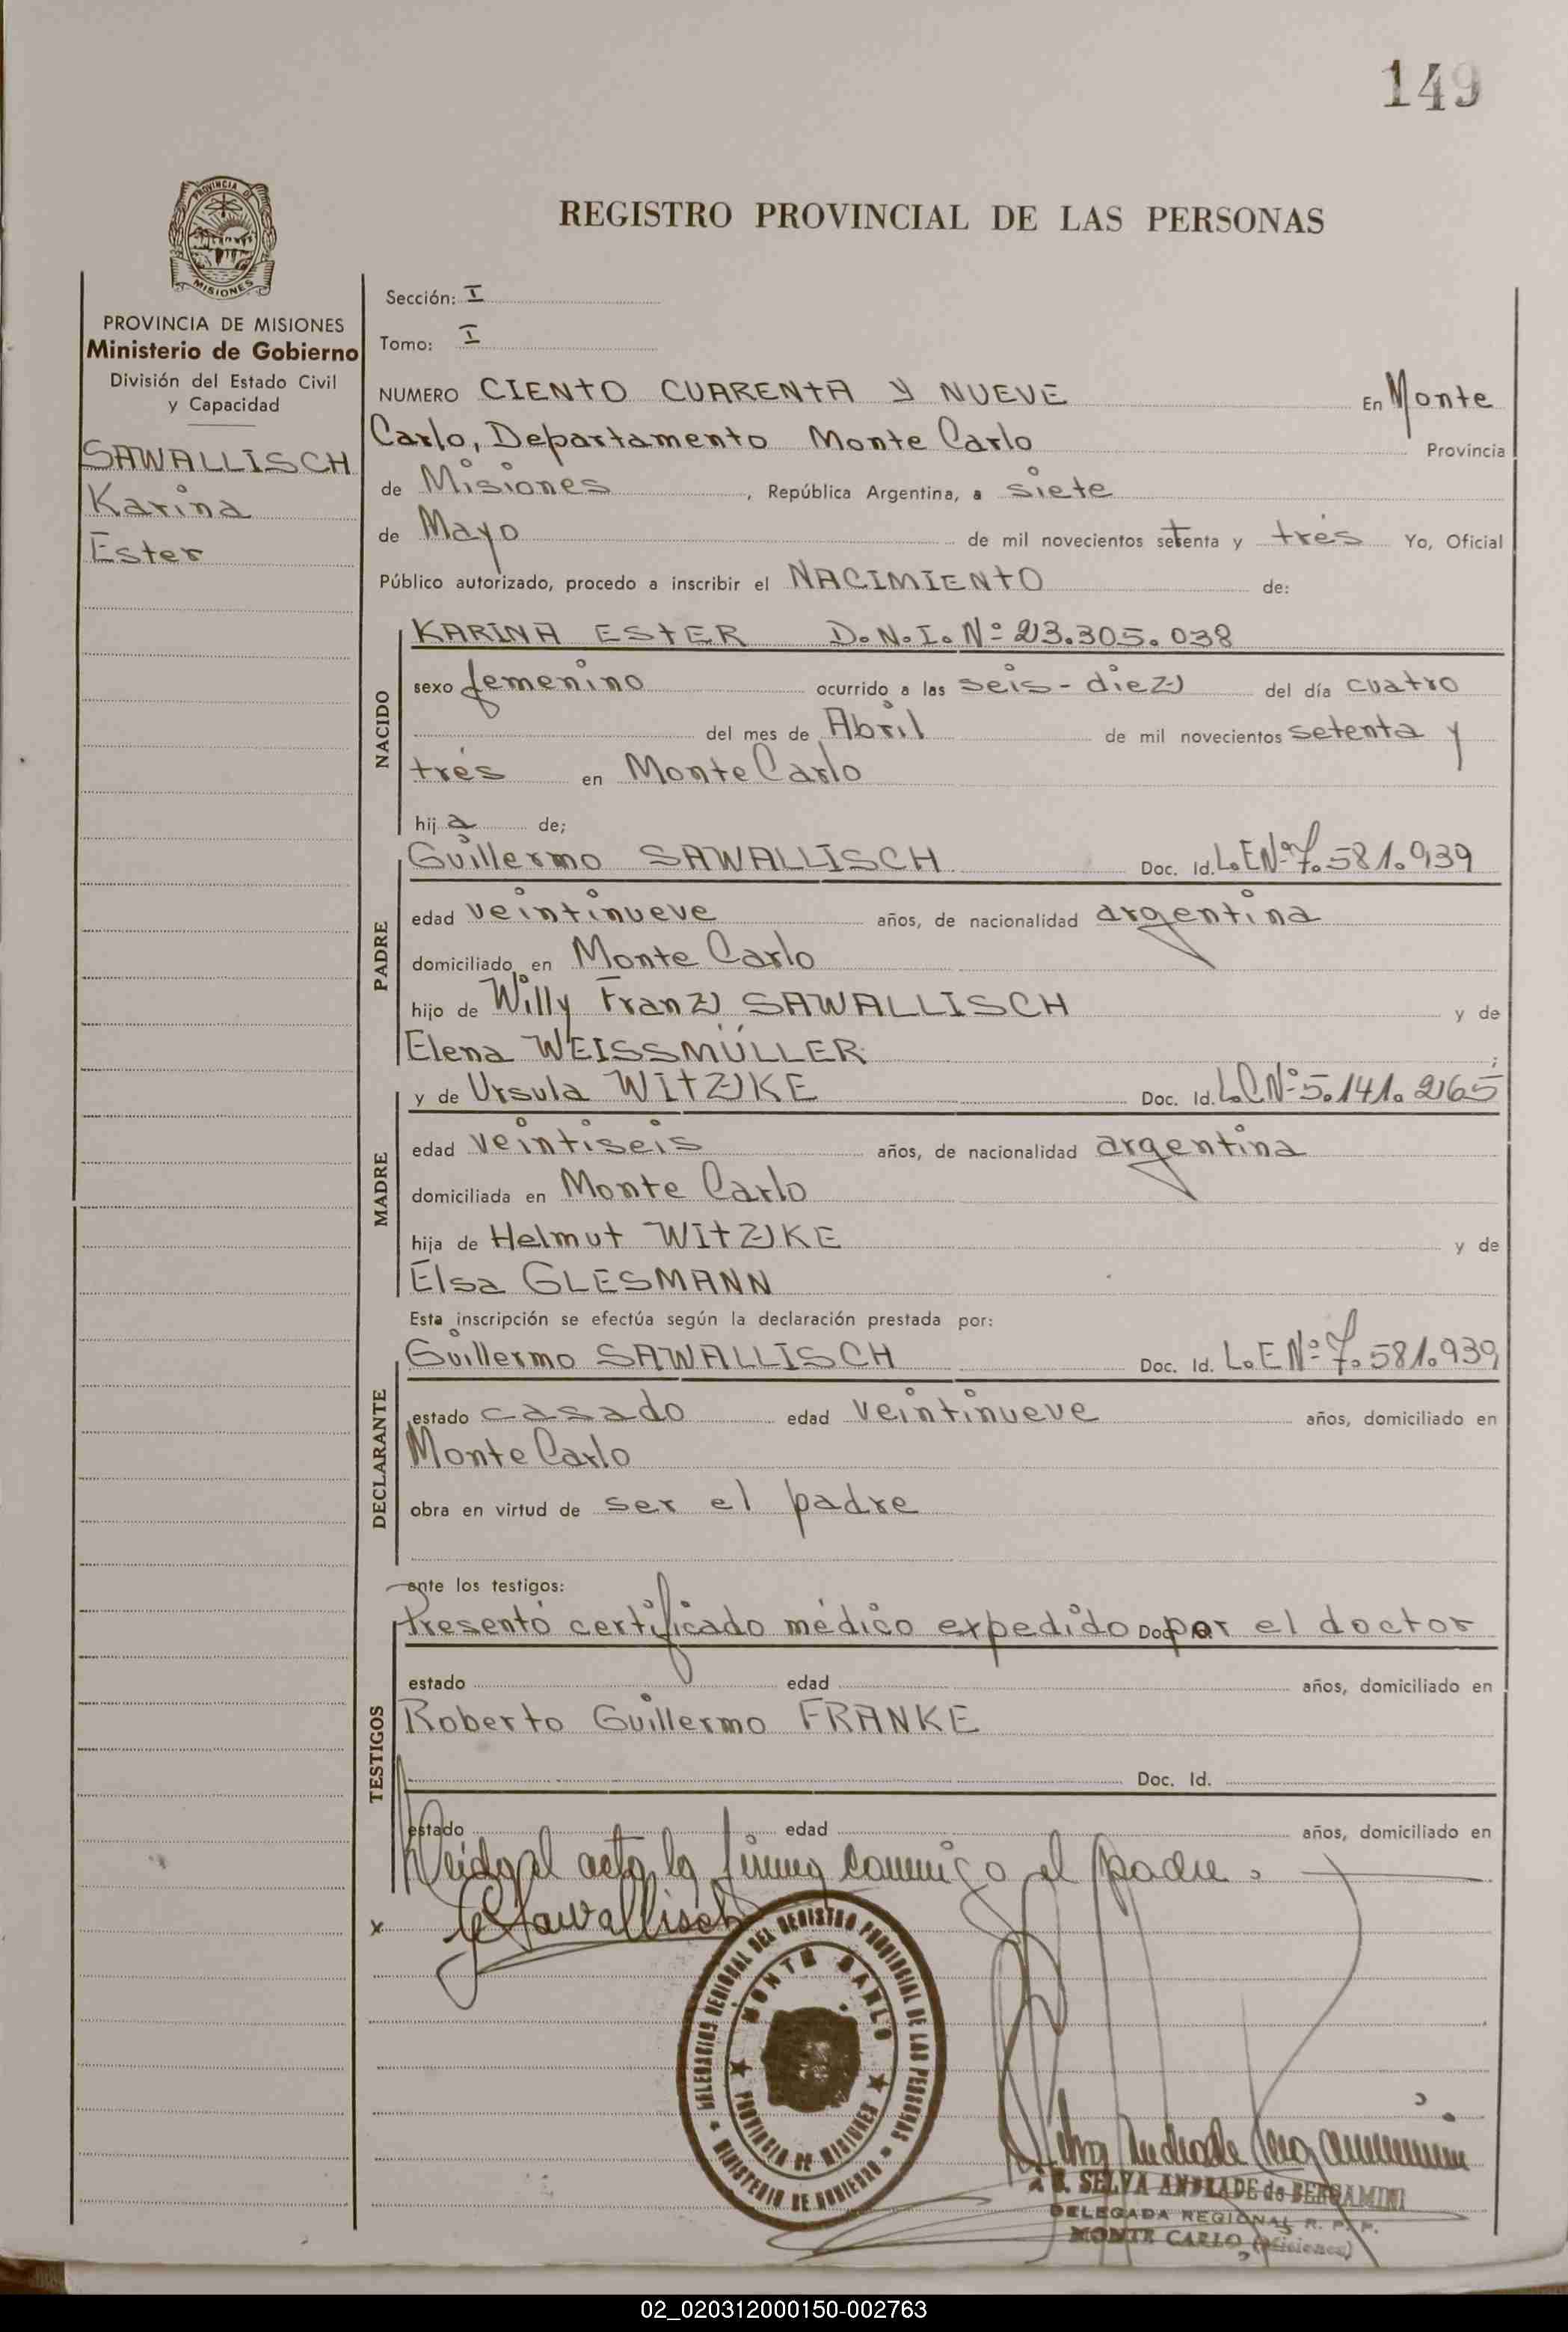 149
PROVINCIA DE
MISIONES
REGISTRO PROVINCIAL DE LAS PERSONAS
PROVINCIA DE MISIONES
Ministerio de Gobierno
División del Estado Civil
y Capacidad
SAWALLISCH
Karina
Ester
Sección: I
Tomo: I
NUMERO CIENTO CUARENTA Y NUEVE En Monte
Carlo, Departamento Monte Carlo Provincia
de Misiones, República Argentina, a siete
de Mayo de mil novecientos setenta y trés Yo, Oficial
Público autorizado, procedo a inscribir el NACIMIENTO de:
NACIDO
KARINA ESTER D.N.I. Nº 23.305.038
sexo femenino ocurrido a las seis-diez del día cuatro
del mes de Abril de mil novecientos setenta y
trés en Monte Carlo
hij a de;
PADRE
Guillermo SAWALLISCH Doc. Id. L.E Nº 7.581.939
edad veintinueve años, de nacionalidad argentina
domiciliado en Monte Carlo
hijo de Willy Franz SAWALLISCH y de
Elena WEISSMÜLLER
MADRE
y de Ursula WITZKE Doc. Id. L.C Nº 5.141.265
edad veintiseis años, de nacionalidad argentina
domiciliada en Monte Carlo
hija de Helmut WITZKE y de
Elsa GLESMANN
Esta inscripción se efectúa según la declaración prestada por:
DECLARANTE
Guillermo SAWALLISCH Doc. Id. L.E Nº 7.581.939
estado casado edad veintinueve años, domiciliado en
Monte Carlo
obra en virtud de ser el padre
ante los testigos:
TESTIGOS
Presentó certificado médico expedido por el doctor
estado edad años, domiciliado en
Roberto Guillermo FRANKE
Doc. Id.
estado edad años, domiciliado en
Leida el acta, la firma conmigo el padre.
x GSawallisch
DELEGACION REGIONAL DEL REGISTRO PROVINCIAL DE LAS PERSONAS
MONTE CARLO
PROVINCIA DE MISIONES
MINISTERIO DE GOBIERNO
SELVA ANDRADE de BERGAMINI
DELEGADA REGIONAL R. P. P.
MONTE CARLO (Misiones)
02_020312000150-002763